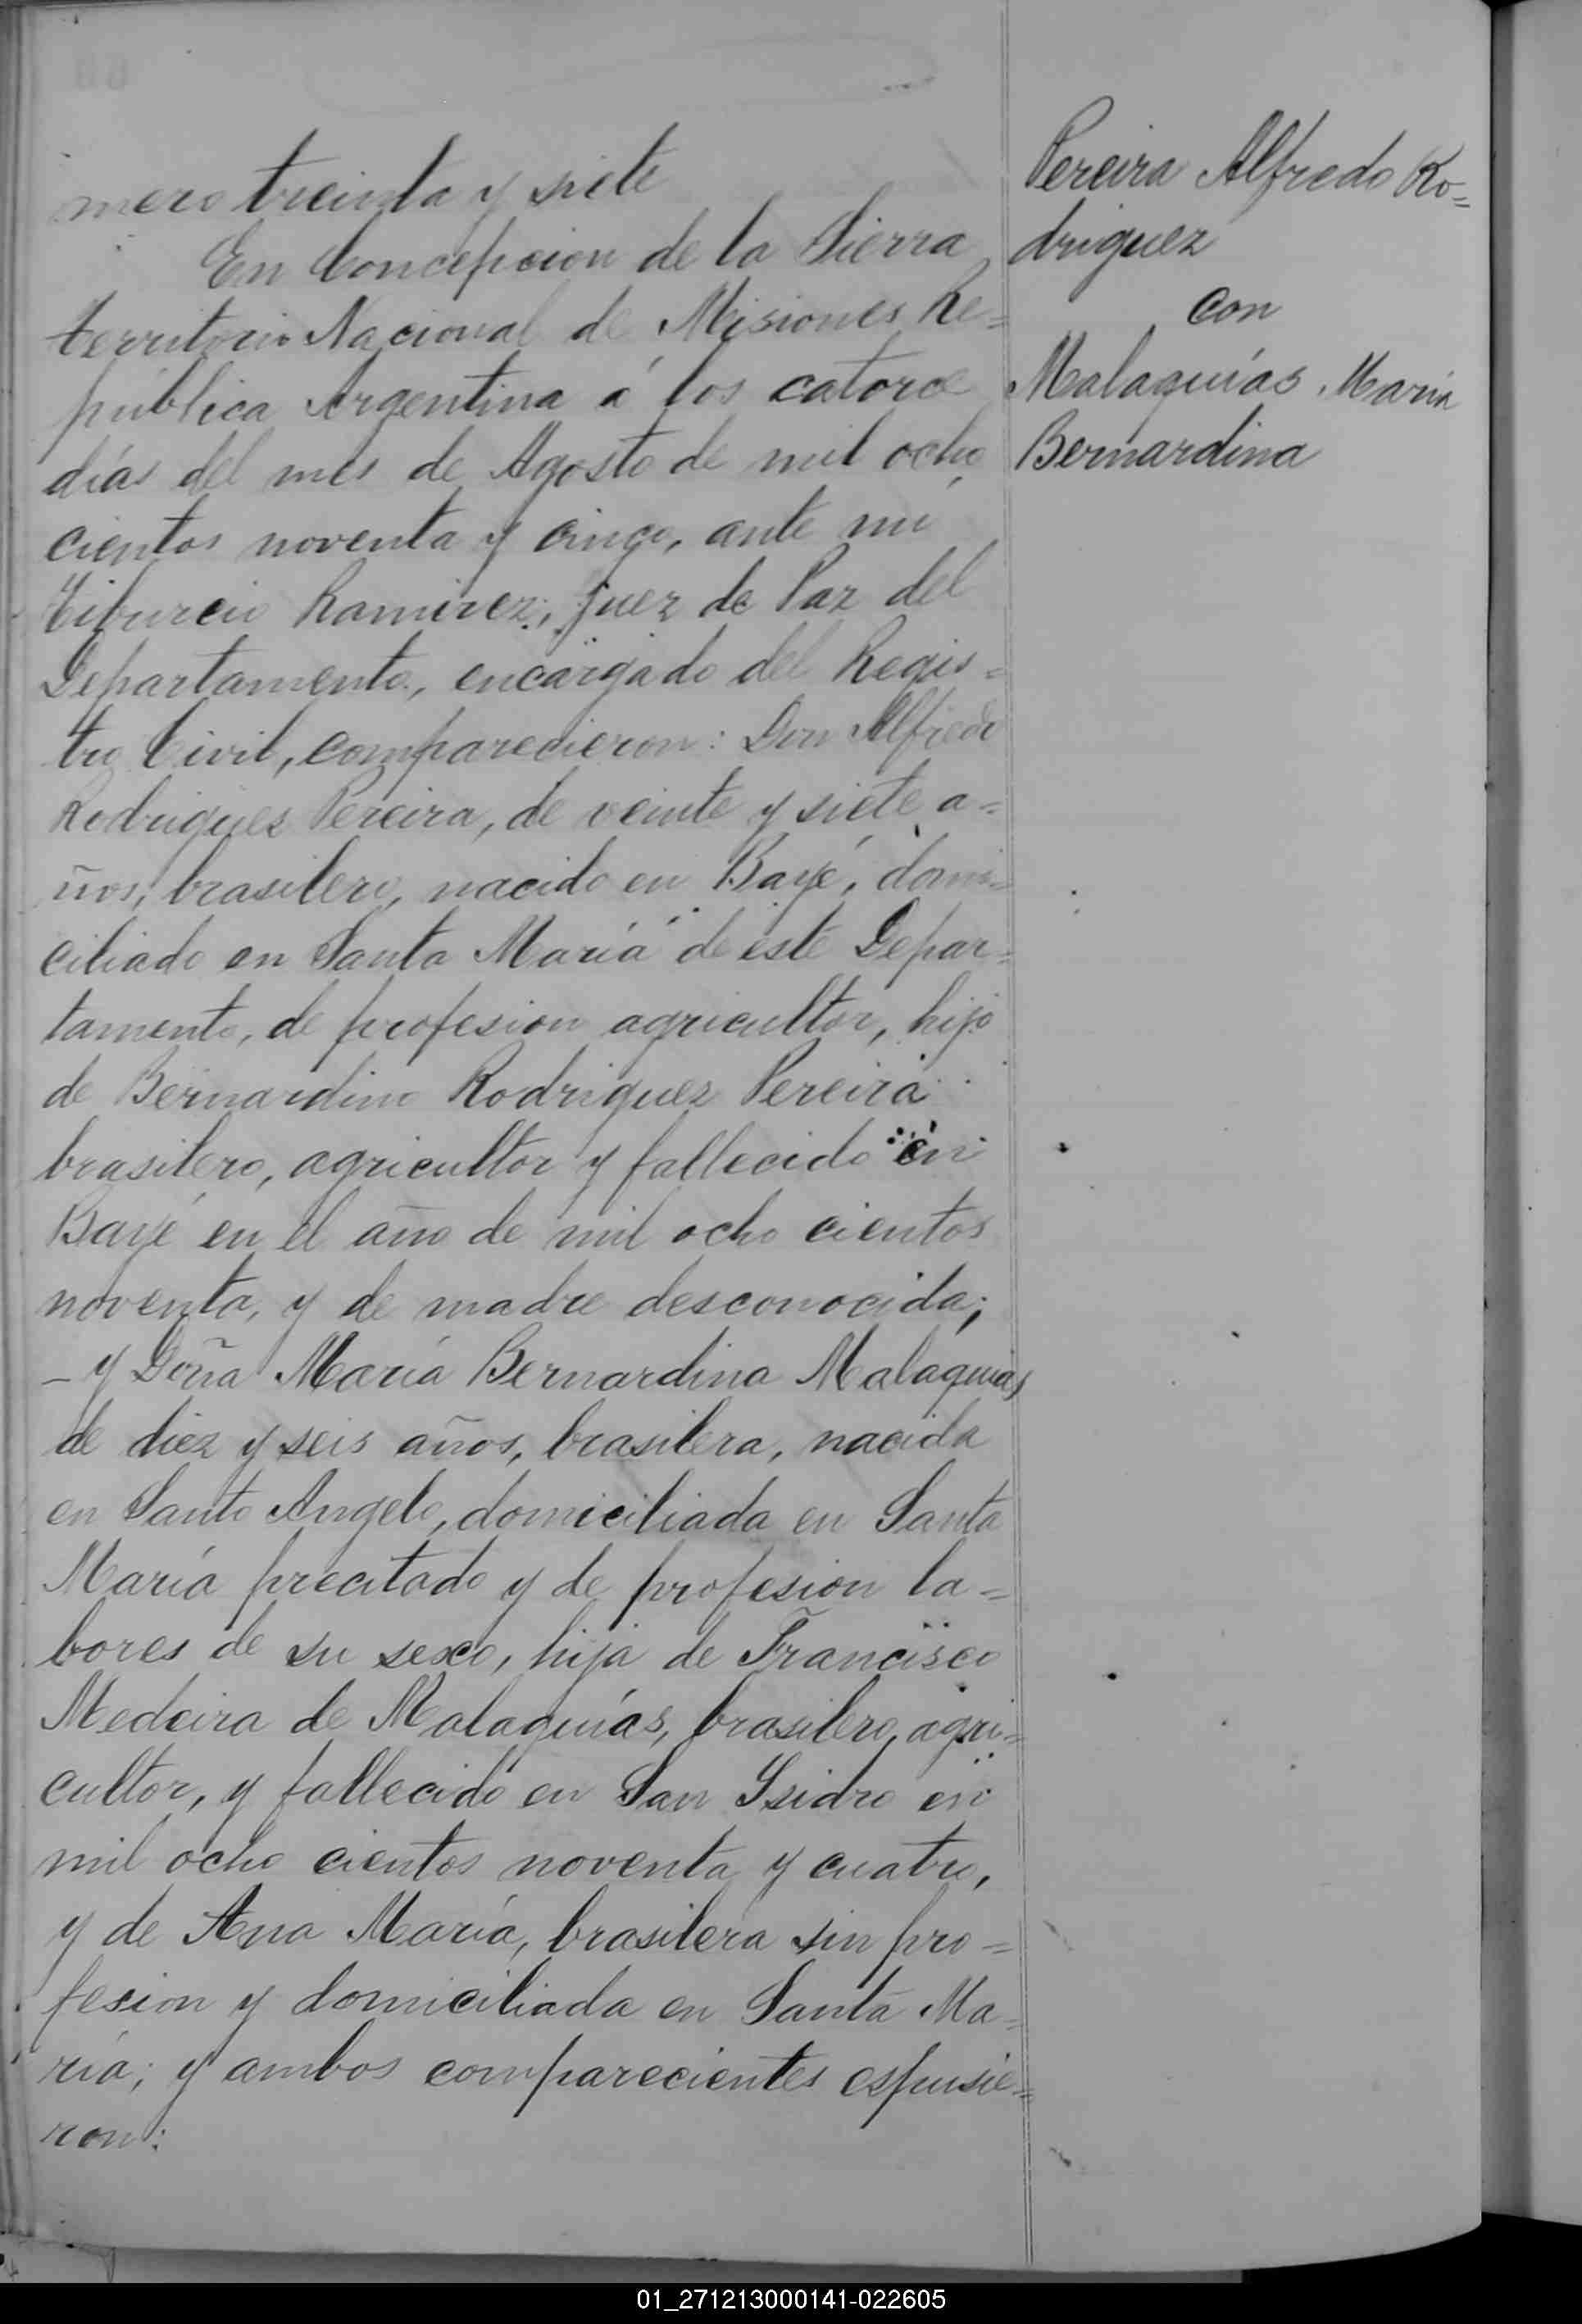 mero treinta y siete
En Concepcion de la Sierra
territorio Nacional de Misiones Re=
pública Argentina á los catorce
días del mes de Agosto de mil ocho
cientos noventa y cinco, ante mi
Tiburcio Ramirez, Juez de Paz del
Departamento, encargado del Regis=
tro Civil, comparecieron: Don Alfredo
Rodrigues Pereira, de veinte y siete a=
ños, brasilero, nacido en Bayé, domi=
ciliado en Santa María de este Depar=
tamento, de profesion agricultor, hijo
de Bernardino Rodriguez Pereira
brasilero, agricultor y fallecido en
Bayé en el año de mil ocho cientos
noventa, y de madre desconocida;
_ y Doña María Bernardina Malaquias
de diez y seis años, brasilera, nacida
en Santo Angelo, domiciliada en Santa
María precitado y de profesion la=
bores de su sexo, hija de Francisco
Medeira de Malaquías, brasilero, agri=
cultor, y fallecido en San Ysidro en
mil ocho cientos noventa y cuatro,
y de Ana María, brasilera sin pro=
fesion y domiciliada en Santa Ma=
ría; y ambos comparecientes espusie=
ron:
Pereira Alfredo Ro=
driguez
con
Malaquías María
Bernardina
01_271213000141-022605